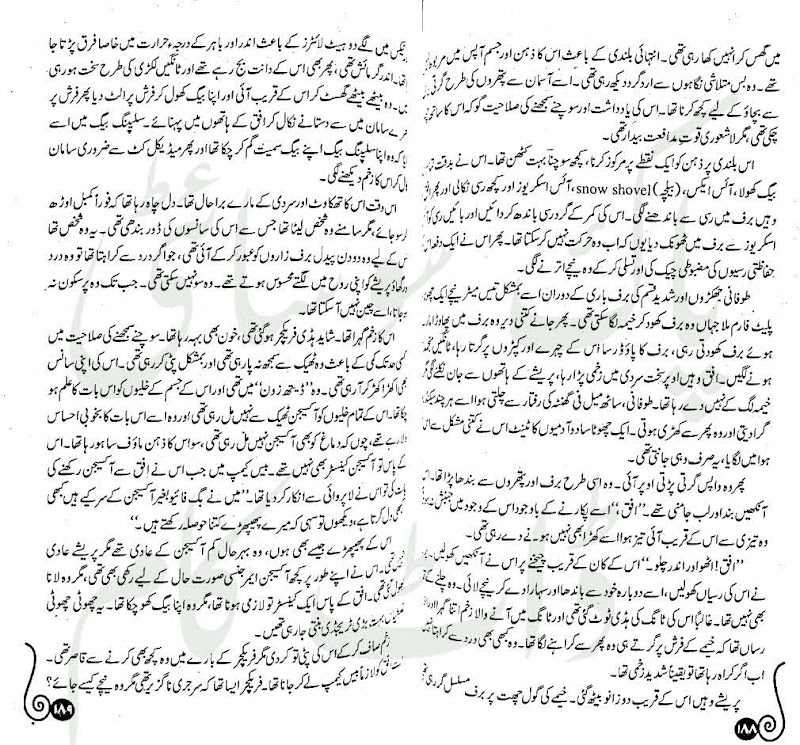 میں گھس کر انہیں کھا رہی تھی۔ انتہائی بلندی کے باعث اس کا ذہن اور جسم آپس میں مربوط
تھے۔ وہ بس متلاشی نگاہوں سے ارد گرد دیکھ رہی تھی۔ اسے آسمان سے پتھروں کی طرح گرتی
سے بچاؤ کے لیے کچھ کرنا تھا۔ اس کی یادداشت اور سوچنے سمجھنے کی صلاحیت گو کہ اس کا ساتھ
چکی تھی، مگر لاشعوری قوتِ مدافعت بیدار تھی۔
اس بلندی پر ذہن کو ایک نقطے پر مرکوز کرنا، کچھ سوچنا بہت کٹھن تھا۔ اس نے بدقت
بیگ کھولا، آئس ایکس، (بیلچہ) snow shovel، آئس اسکریوز اور کچھ رسی نکالی اور پھر
وہیں برف میں رسی سے باندھنے لگی۔ اس کی کمر کے گرد رسی باندھ کر دائیں اور بائیں
اسکریوز سے برف میں ٹھونک دیا یوں کہ اب وہ حرکت نہیں کر سکتا تھا۔ پھر اس نے ایک دفعہ
حفاظتی رسیوں کی مضبوطی چیک کی اور تسلی کر کے وہ نیچے اترنے لگی۔
طوفانی جھکڑوں اور شدید قسم کی برف باری کے دوران اسے بمشکل تیس میٹر نیچے ایک
پلیٹ فارم ملا جہاں وہ برف کھود کر خیمہ لگا سکتی تھی۔ پھر جانے کتنی دیر وہ برف میں پھاوڑا
ہوئے برف کھودتی رہی، برف کا پاؤڈر سا اس کے چہرے اور کپڑوں پر گرتا رہا، ٹانگیں
ہونے لگیں۔ افق وہیں اوپر سخت سردی میں زخمی پڑا رہا، پریشے کے ہاتھوں سے جان نکلنے لگی
خیمہ لگ کے نہیں دے رہا تھا۔ طوفانی، ساٹھ میل فی گھنٹہ کی رفتار سے چلتی ہوا اسے ہر چند سیکنڈ
گرا دیتی اور وہ پھر سے کھڑی ہوتی۔ ایک چھوٹا سا دو آدمیوں کا ٹینٹ اس نے کتنی مشکل سے
ہوا میں لگایا، یہ صرف وہی جانتی تھی۔
پھر وہ واپس گرتی پڑتی اوپر آئی۔ وہ اسی طرح برف اور پتھروں سے بندھا پڑا تھا۔
آنکھیں بند اور لب جامنی تھے۔ ”افق،“ اسے پکارنے کے باوجود اس کے وجود میں جنبش
وہ تیزی سے اس کے قریب آئی تیز ہوا اسے کھڑا بھی نہیں ہونے دے رہی تھی۔
”افق! اٹھو اور اندر چلو۔“ اس کے کان کے قریب چیخنے پر اس نے آنکھیں کھولیں،
نے اس کی رسیاں کھولیں، اسے دوبارہ خود سے باندھا اور سہارا دے کر نیچے لائی۔ وہ چلنے کے
بھی نہیں تھا۔ غالباً اس کی ٹانگ کی ہڈی ٹوٹ گئی تھی اور ٹانگ میں آنے والا زخم اتنا گہرا اور
رساں تھا کہ خیمے کے فرش پر گرتے ہی وہ پھر سے کراہنے لگا تھا۔ وہ کبھی بھی درد سے کراہتا نہیں
اب اگر کراہ رہا تھا تو یقیناً شدید زخمی تھا۔
پریشے وہیں اس کے قریب دوزانو بیٹھ گئی۔ خیمے کی گول چھت پر برف مسلسل گر رہی
۱۸۸
میں لگے دو ہیٹ لائٹرز کے باعث اندر اور باہر کے درجۂ حرارت میں خاصا فرق پڑتا جا
اندر گرمائش تھی، پھر بھی اس کے دانت بج رہے تھے اور ٹانگیں لکڑی کی طرح سخت ہو رہی
وہ بیٹھے بیٹھے گھسٹ کر اس کے قریب آئی اور اپنا بیگ کھول کر فرش پر الٹ دیا پھر فرش پر
سامان میں سے دستانے نکال کر افق کے ہاتھوں میں پہنائے۔ سلیپنگ بیگ میں اسے
کہ وہ اپنا سلیپنگ بیگ اپنے بیگ سمیت گم کر چکا تھا اور پھر میڈیکل کٹ سے ضروری سامان
کر اس کا زخم دیکھنے لگی۔
اس وقت اس کا تھکاوٹ اور سردی کے مارے برا حال تھا۔ دل چاہ رہا تھا کہ فوراً کمبل اوڑھ
سو جائے، مگر سامنے وہ شخص لیٹا تھا جس سے اس کی سانسوں کی ڈور بندھی تھی۔ یہ وہ شخص تھا
کے لیے وہ دو دن پیدل برف زاروں کو عبور کر کے آئی تھی، جو اگر درد سے کراہتا تھا تو وہ درد
پریشے کو اپنی روح میں لگتے محسوس ہوتے تھے۔ وہ سو نہیں سکتی تھی۔ جب تک وہ پرسکون نہ
اسے چین نہیں آ سکتا تھا۔
اس کا زخم گہرا تھا۔ شاید ہڈی فریکچر ہو گئی تھی، خون بھی بہہ رہا تھا۔ سوچنے سمجھنے کی صلاحیت میں
حد تک کمی کے باعث وہ ٹھیک سے سمجھ نہ پا رہی تھی اور بمشکل پٹی کر رہی تھی۔ اس کی اپنی سانس
اکھڑ اکھڑ کر آ رہی تھی۔ وہ ”ڈیتھ زون“ میں تھی اور اس کے جسم کے خلیوں کو اس بات کا علم ہو
تھا۔ اس کے تمام خلیوں کو آکسیجن ٹھیک سے نہیں مل رہی تھی اور وہ اسے اس بات کا بخوبی احساس
رہے تھے، چوں کہ دماغ کو بھی آکسیجن نہیں مل رہی تھی، سو اس کا ذہن ماؤف سا ہو رہا تھا۔ اس
کے پاس تو آکسیجن کینسٹر بھی نہیں تھے۔ بیس کیمپ میں جب اس نے افق سے آکسیجن رکھنے کی
بات کی تو اس نے لاپروائی سے انکار کر دیا تھا۔ ”میں نے گیگ فائیو بغیر آکسیجن کے سر کیے ہیں کبھی
دل کرتا ہے، دیکھوں تو سہی کہ میرے پھیپھڑے کتنا حوصلہ رکھتے ہیں۔“
اس کے پھیپھڑے جیسے بھی ہوں، وہ بہرحال کم آکسیجن کے عادی تھے مگر پریشے عادی
اس نے اپنے طور پر کچھ آکسیجن ایمرجنسی صورت حال کے لیے رکھی بھی تھی، مگر وہ لانا
بھول گئی تھی۔ افق کے پاس ایک کینسٹر تو لازمی ہونا تھا، مگر وہ اپنا بیگ کھو چکا تھا۔ یہ چھوٹی چھوٹی
بہت بڑی ٹریجڈی بنتی جا رہی تھیں۔
زخم صاف کر کے اس کی پٹی تو کر دی مگر فریکچر کے بارے میں وہ کچھ بھی کرنے سے قاصر تھی۔
افق کو لازماً بیس کیمپ لے کر جانا تھا۔ فریکچر ایسا تھا کہ سرجری ناگزیر تھی مگر وہ نیچے کیسے جائے؟
۱۸۹